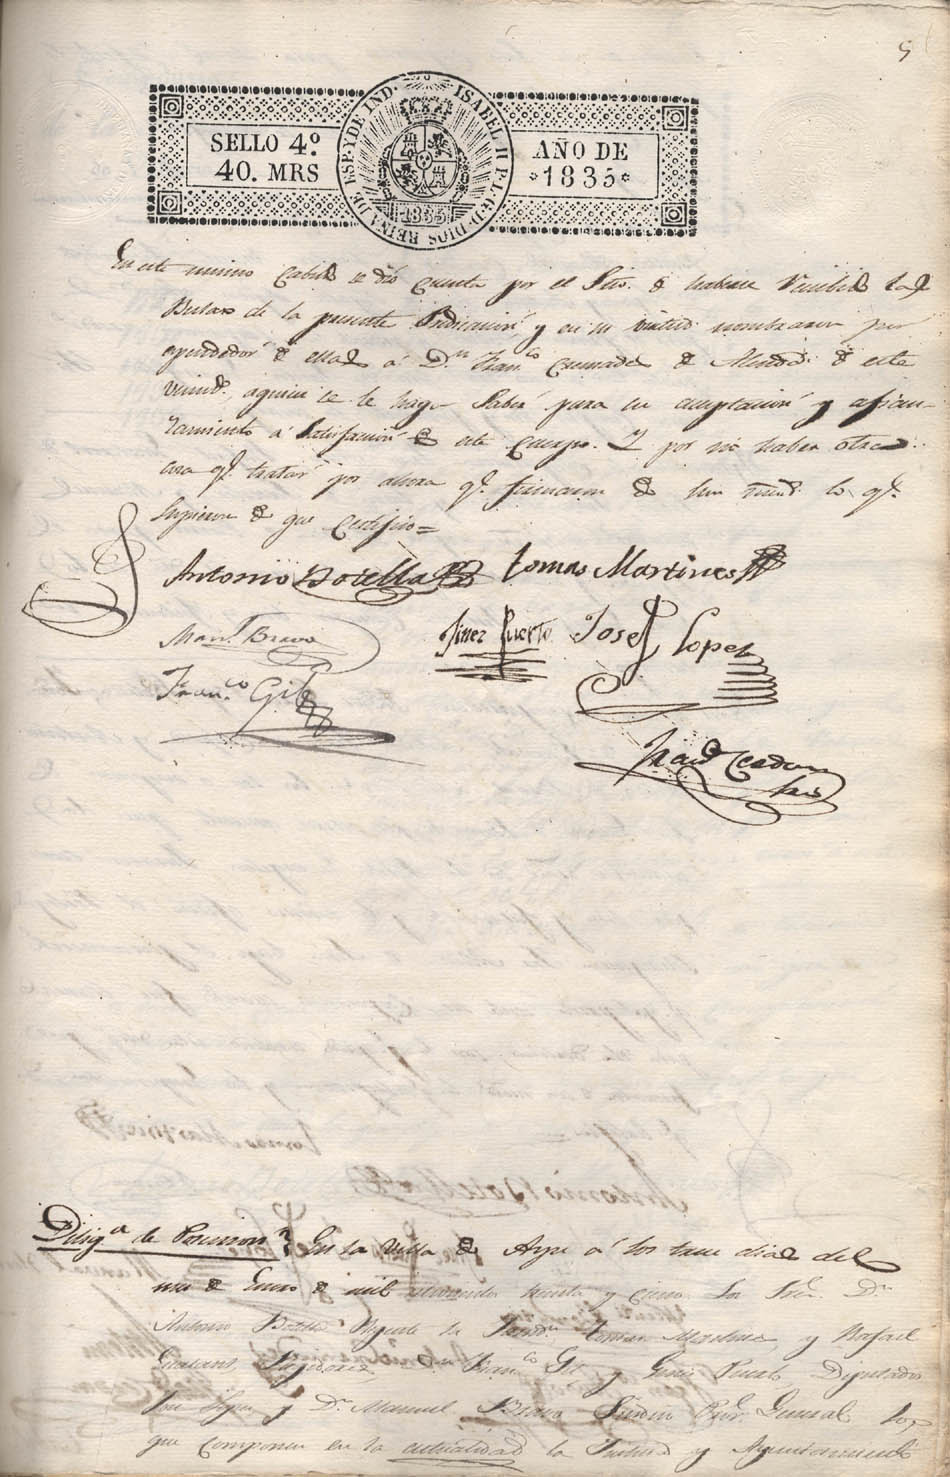 5
SELLO 4º
40. MRS
ISABEL II P.L.G.D.DIOS REINA DE ESP. Y DE IND.
1835
AÑO DE
*1835*
En este mismo Cabdo se dió Cuenta por el Srio. de haberse Recibido las
Bulas de la presente Predicación, y en su virtud nombraron por
espendedor de ellas á Dn. Franco. de este
Vecind. aquien se le haga Saber para su aceptacion y afian-
zamiento á Satisfaccion de este Cuerpo. Y por no haber otra
cosa qe. tratar por ahora qe. firmaron de Sus mrds. los qe.
Supieron de que Certifico=
Antonio Botella
tomas Martines
Manl. Bravo
Jines Puerto
Josef Lopez
Franco. Gil
Diliga de Posesion
En la Villa de Aspe á los trece dias del
mes de Enero de mil ochocientos treinta y cinco los Sres. Dn.
Antonio Botella Regente la Jurisdn. Tomas Martinez, y Rafael
Regidores, Dn. Franco Gil y Ginés Puerto, Diputados
y Dn. Manuel Bravo Sindico Pror. General, los
que componen en la actualidad la Justicia y Ayuntamiento